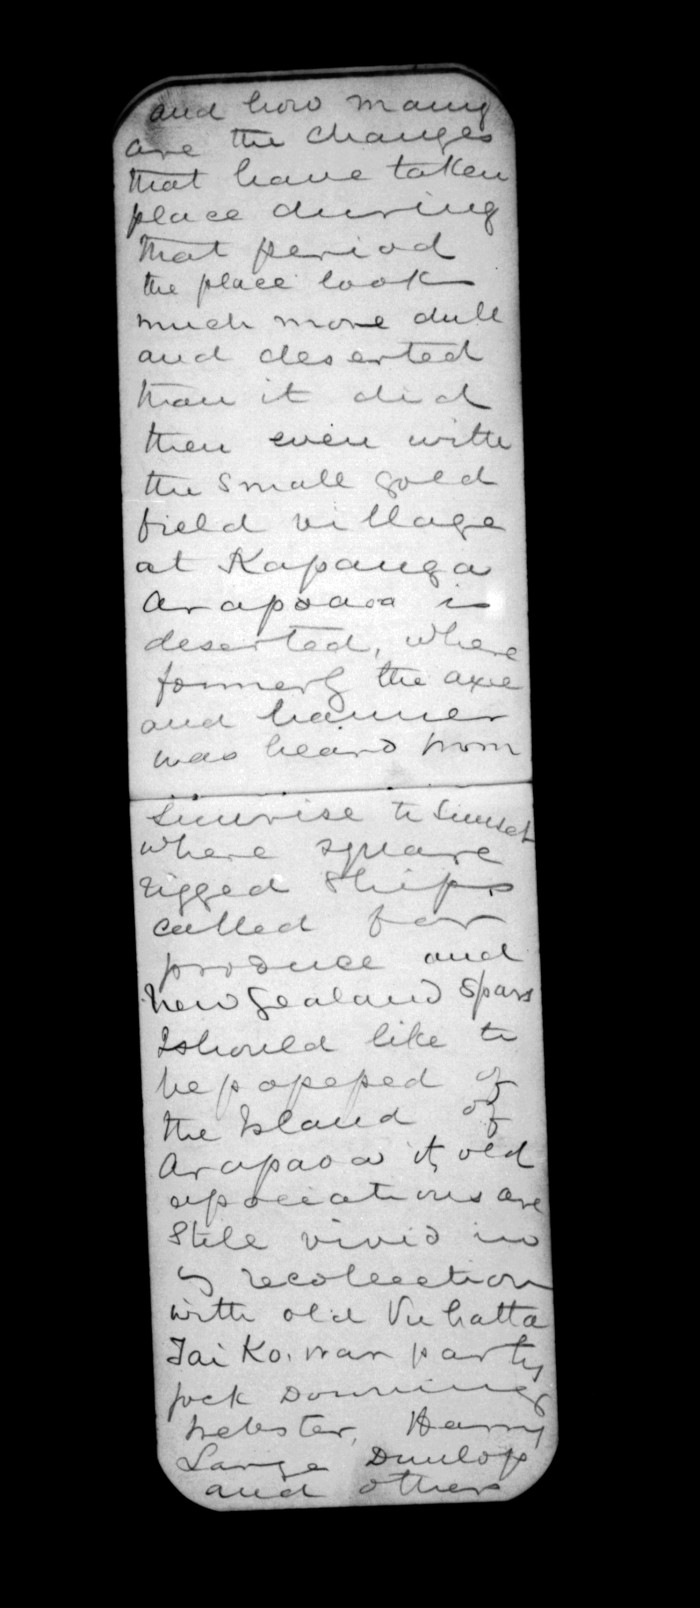 and how many
are the changes
that have taken
place during
that period
the place look
much more dull
and deserted
than it did
then even with
the small gold
field village
at Kapanga
Arapaoa is
deserted, where
formerly the axe
and hammer
was heard from
Sunrise to Sunset
where square
rigged Ships
called for
produce and
New Zealand Spars
I should like to
be possessed of
the Island of
Arapaoa it, old
associations are
Still vivid in
my recollection
with old
Tai Ko. war party
Jock Downing
Webster, Harry
Lange Dunlop
and others